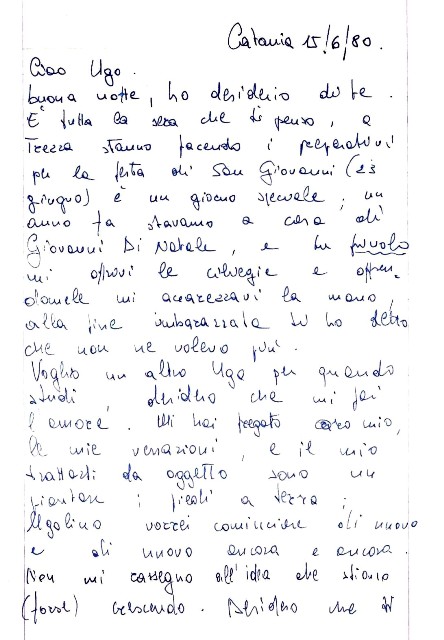 Catania 15/6/80.
Ciao Ugo.
buona notte, ho desiderio di te.
È tutta la sera che ti penso, a
Trezza stanno facendo i preparativi
per la festa di San Giovanni (23
giugno) è un giorno speciale; un
anno fa stavamo a casa di
Giovanni Di Natale, e tu
mi offrivi le ciliegie e offren-
domele mi accarezzavi la mano,
alla fine imbarazzata ti ho detto
che non ne volevo più.
Voglio un altro Ugo per quando
studi, desidero che mi fai
l'amore. Mi hai fregato caro mio,
le mie venazioni, e il mio
trattarti da oggetto sono un
piantare i piedi a terra;
Ugolino vorrei cominciare di nuovo
e di nuovo ancora e ancora.
Non mi rassegno all'idea che stiamo
(forse) crescendo. Desidero che